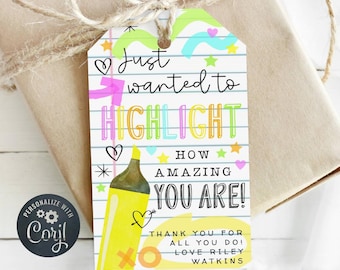 Just
wanted to
HIGHLIGHT
HOW
AMAZING
YOU ARE!
THANK YOU FOR
ALL YOU DO!
LOVE RILEY
WATKINS
XO
PERSONALIZE WITH
Corjl